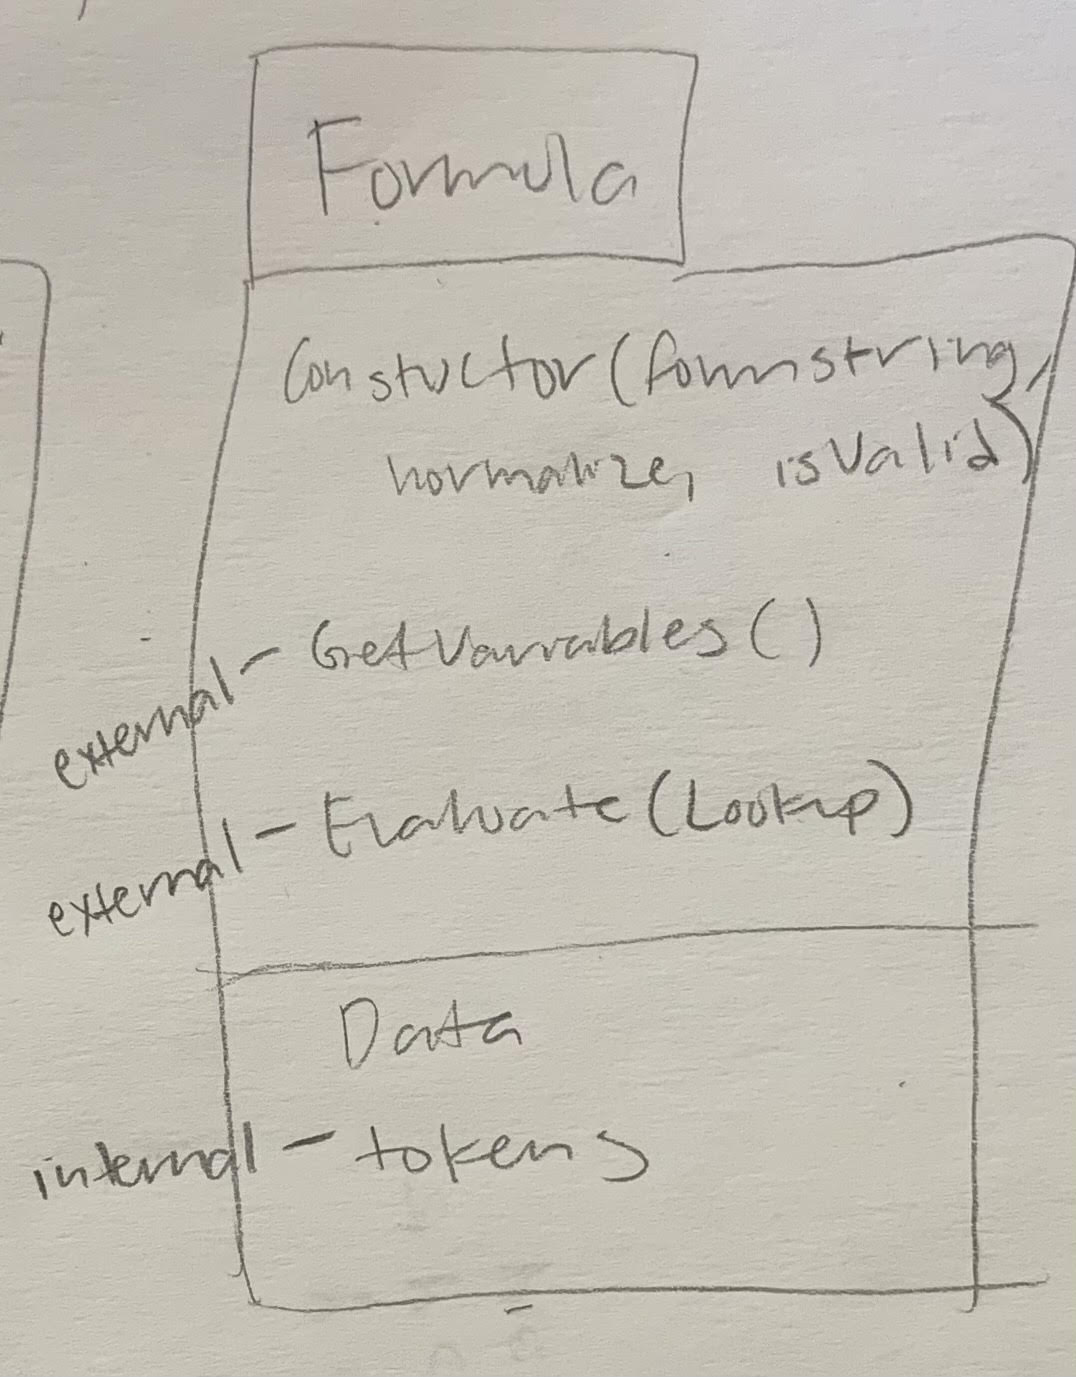 Formula
Constuctor (formstring,
normalize, isValid)
external - GetVariables ()
external - Evaluate (Lookup)
Data
internal - tokens